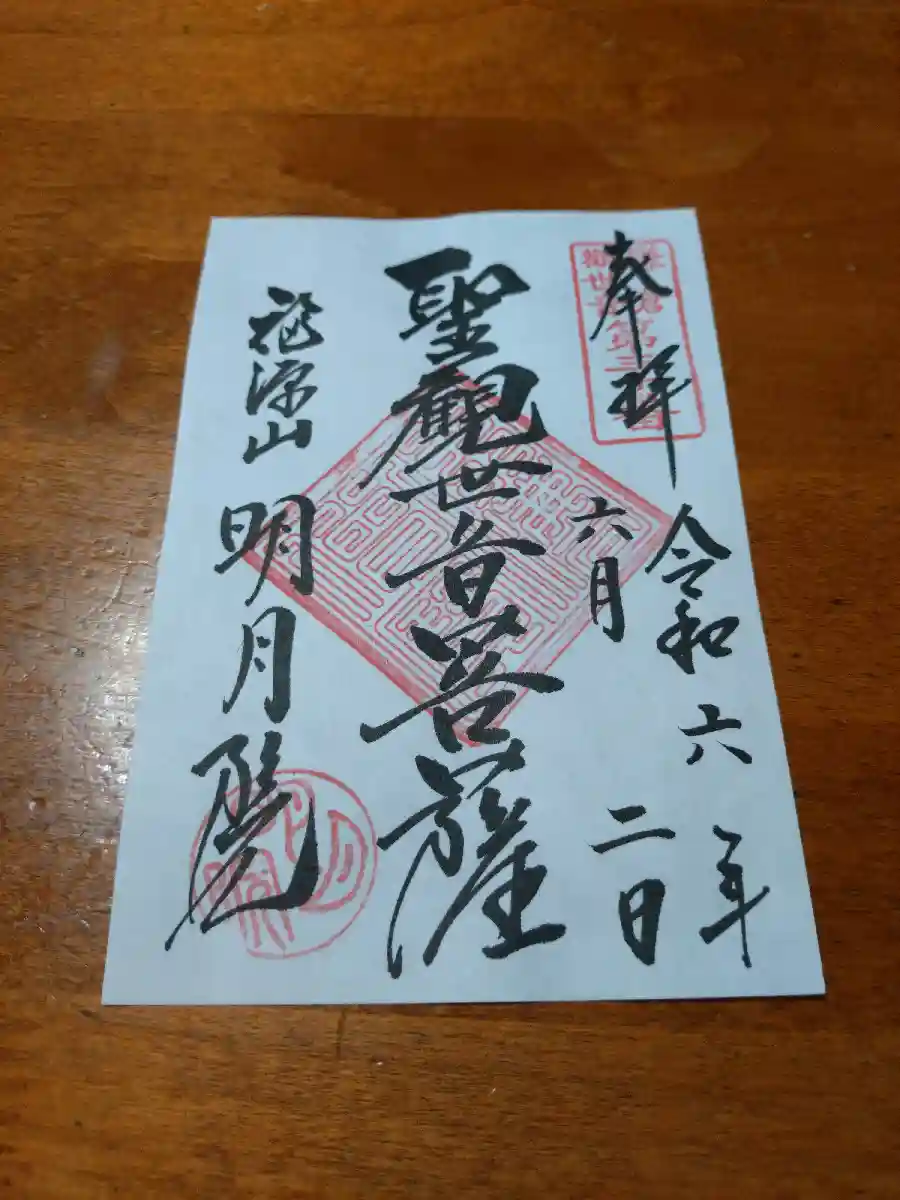 奉拝
令和六年
六月二日
聖觀世音菩薩
福源山
明月院